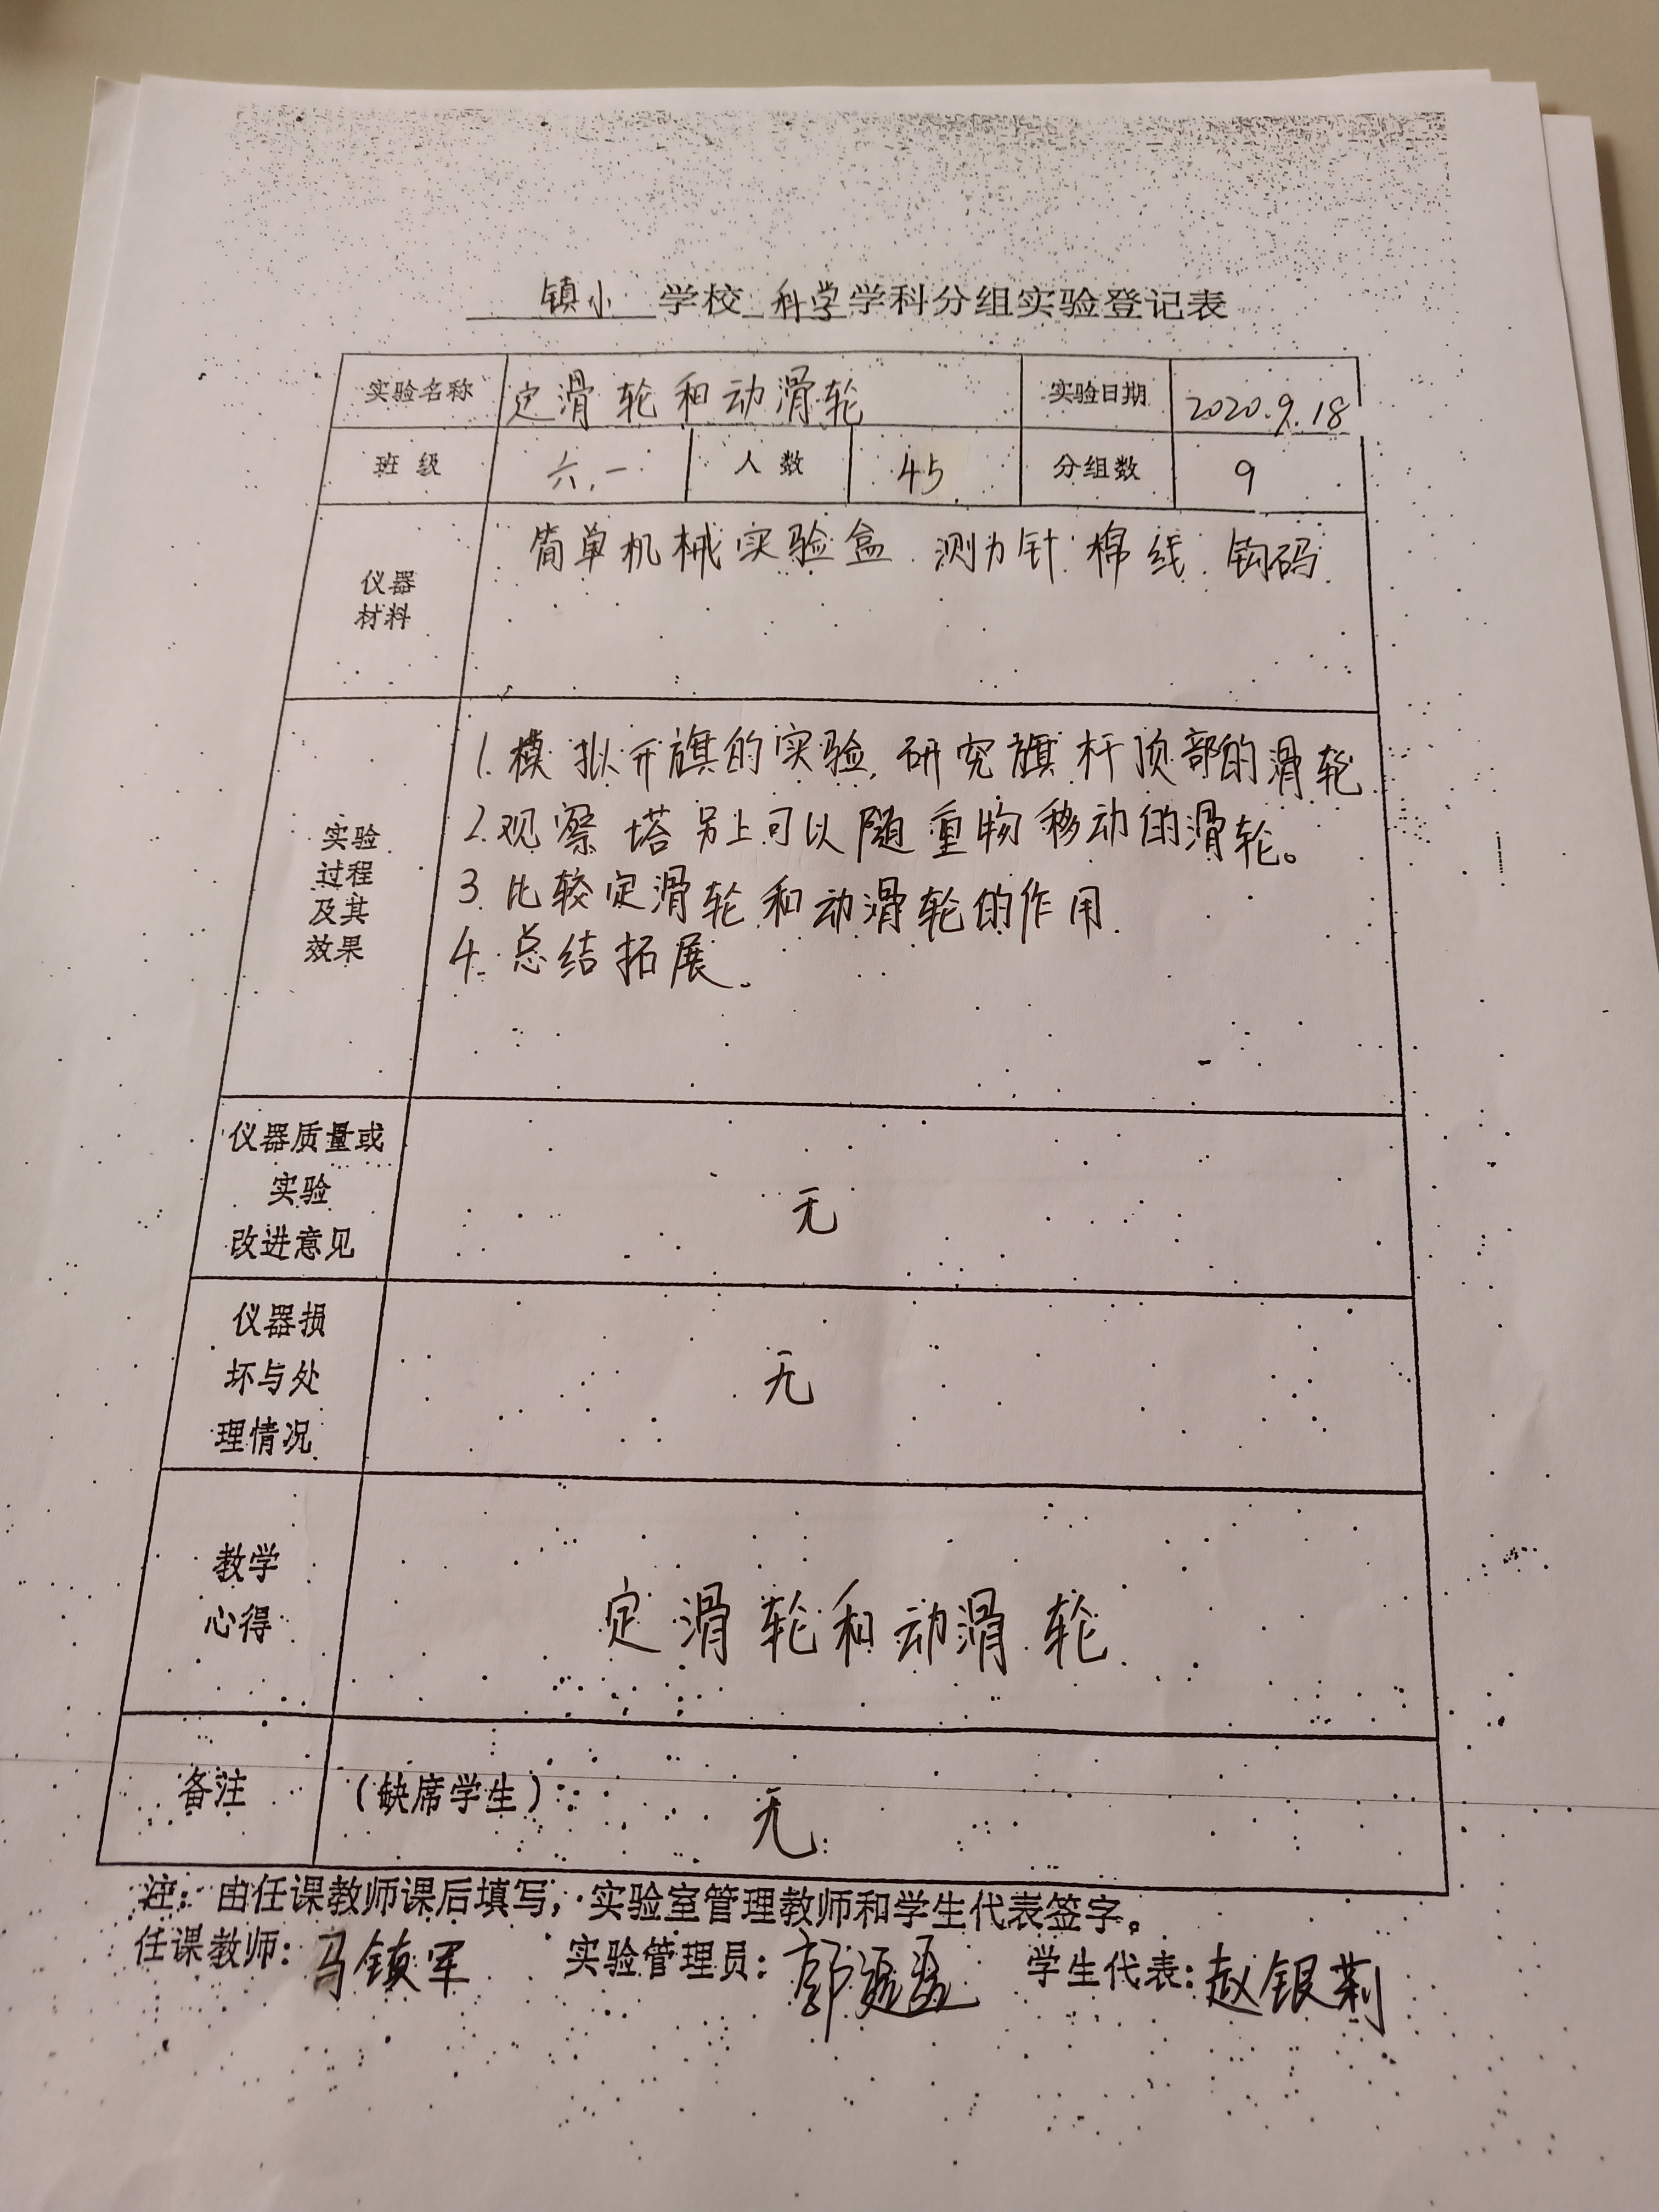 镇小 学校 科学 学科分组实验登记表
实验名称 定滑轮和动滑轮 实验日期 2020.9.18
班级 六.一 人数 45 分组数 9
仪器
材料
简单机械实验盒. 测力计. 棉线. 钩码.
实验
过程
及其
效果
1. 模拟升旗的实验, 研究旗杆顶部的滑轮
2. 观察塔吊上可以随重物移动的滑轮。
3. 比较定滑轮和动滑轮的作用.
4. 总结拓展。
仪器质量或
实验
改进意见
无
仪器损
坏与处
理情况
无
教学
心得
定滑轮和动滑轮.
备注 (缺席学生): 无
注: 由任课教师课后填写, 实验室管理教师和学生代表签字。
任课教师: 马镇军 实验管理员: 郭 学生代表: 赵银莉